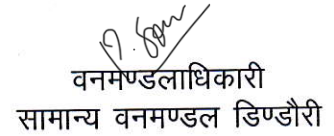 वनमण्डलाधिकारी
सामान्य वनमण्डल डिण्डौरी